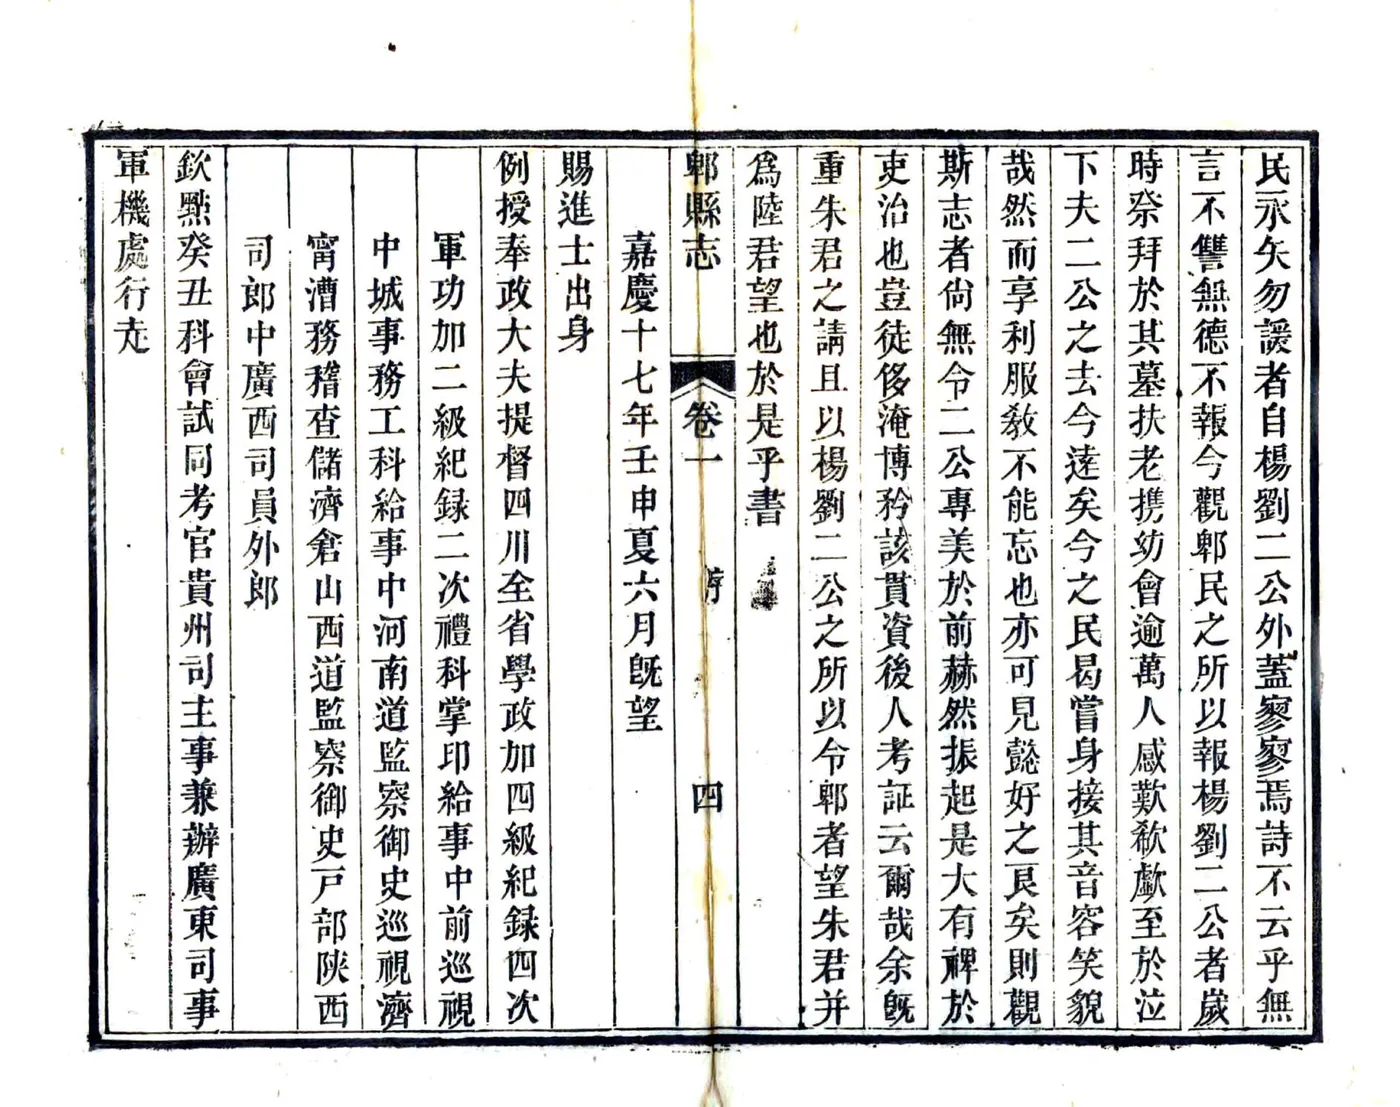 民永矢勿諼者自楊劉二公外蓋寥寥焉詩不云乎無
言不讐無德不報今觀郫民之所以報楊劉二公者歲
時祭拜於其墓扶老携幼會逾萬人感歎欷歔至於泣
下夫二公之去今遠矣今之民曷嘗身接其音容笑貌
哉然而享利服教不能忘也亦可見懿好之良矣則觀
斯志者尙無令二公專美於前赫然振起是大有裨於
吏治也豈徒侈淹博矜該貫資後人考証云爾哉余旣
重朱君之請且以楊劉二公之所以令郫者望朱君并
爲陸君望也於是乎書
郫縣志
卷一
序
四
嘉慶十七年壬申夏六月旣望
賜進士出身
例授奉政大夫提督四川全省學政加四級紀録四次
軍功加二級紀録二次禮科掌印給事中前巡視
中城事務工科給事中河南道監察御史巡視濟
甯漕務稽查儲濟倉山西道監察御史戸部陝西
司郎中廣西司員外郎
欽㸃癸丑科會試同考官貴州司主事兼辦廣東司事
軍機處行走